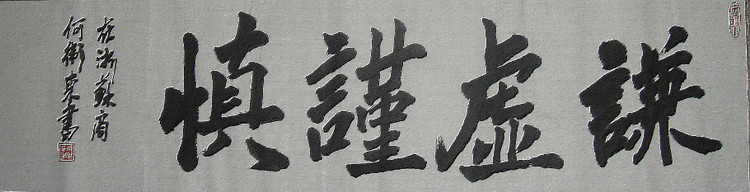 謙虛謹慎
在浙蘇商
何衛東書